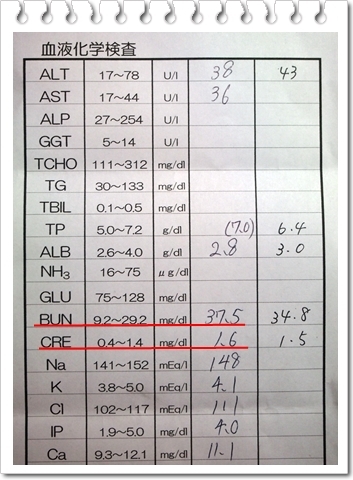 血液化学検査
ALT 17〜78 U/l 38 43
AST 17〜44 U/l 36
ALP 27〜254 U/l
GGT 5〜14 U/l
TCHO 111〜312 mg/dl
TG 30〜133 mg/dl
TBIL 0.1〜0.5 mg/dl
TP 5.0〜7.2 g/dl (7.0) 6.4
ALB 2.6〜4.0 g/dl 2.8 3.0
NH₃ 16〜75 μg/dl
GLU 75〜128 mg/dl
BUN 9.2〜29.2 mg/dl 37.5 34.8
CRE 0.4〜1.4 mg/dl 1.6 1.5
Na 141〜152 mEq/l 148
K 3.8〜5.0 mEq/l 4.1
Cl 102〜117 mEq/l 111
IP 1.9〜5.0 mg/dl 4.0
Ca 9.3〜12.1 mg/dl 11.1